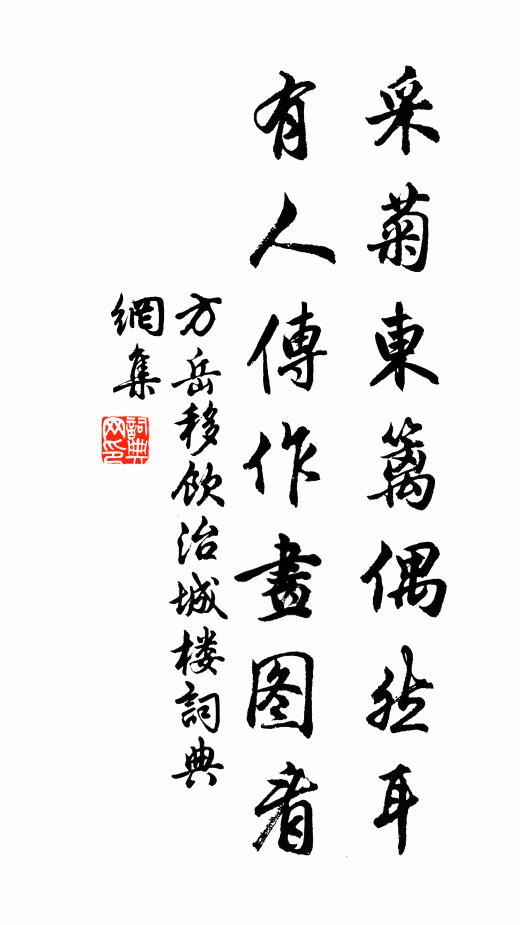 采菊東籬偶然耳
有人傳作畫图看
方岳移飲治城楼詞典
網集
詞典网印